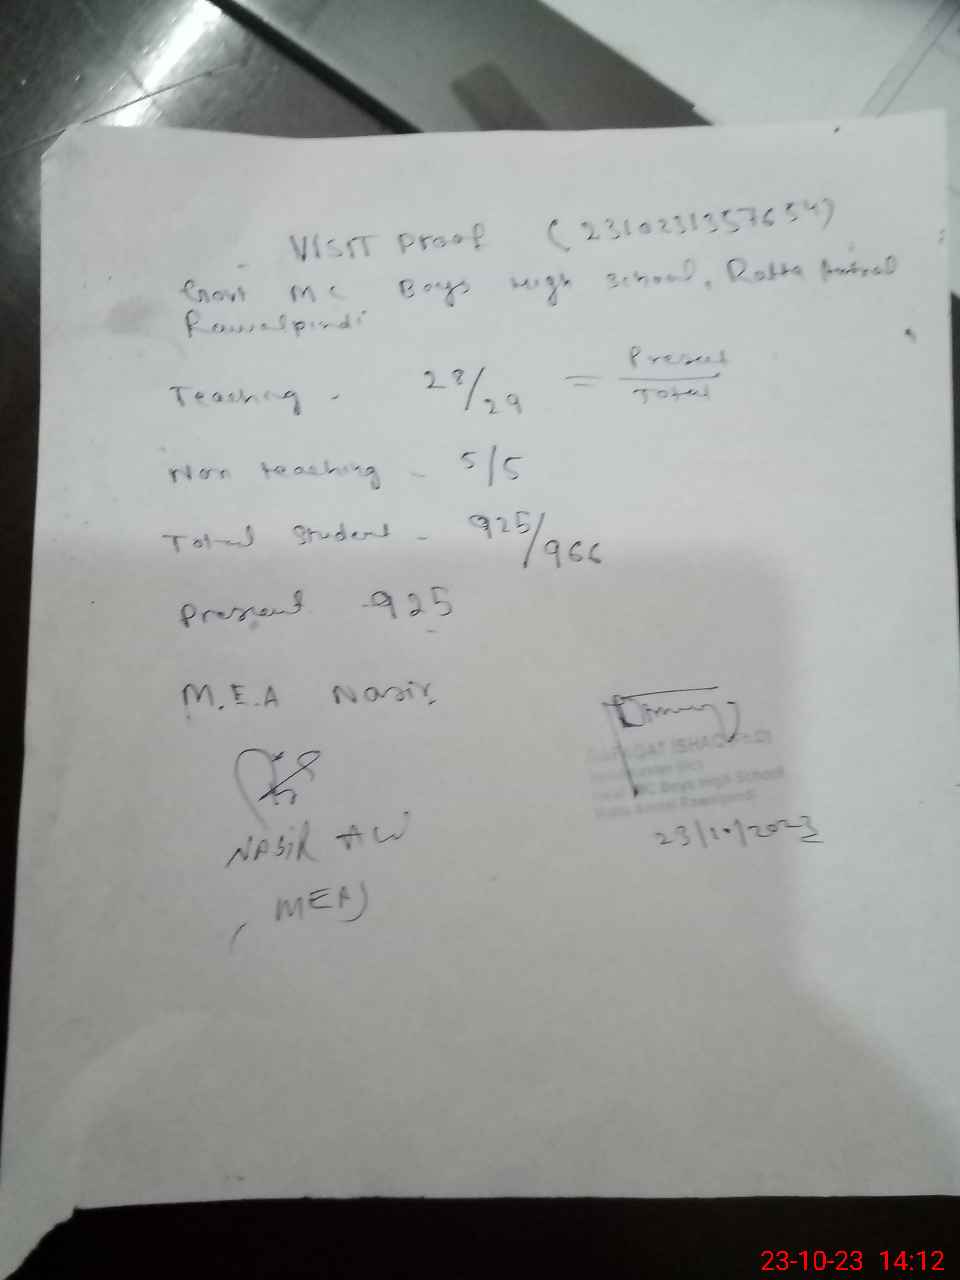 VISIT Proof (2310231357654)
Govt MC Boys High School, Ratta Amral
Rawalpindi
Teaching - 28/29 = Present/Total
Non teaching - 5/5
Total Student - 925/966
Present - 925
M.E.A Nasir
ISHAQ
MC Boys High School
Rawalpindi
23/10/2023
NASIR
MEA)
23-10-23 14:12